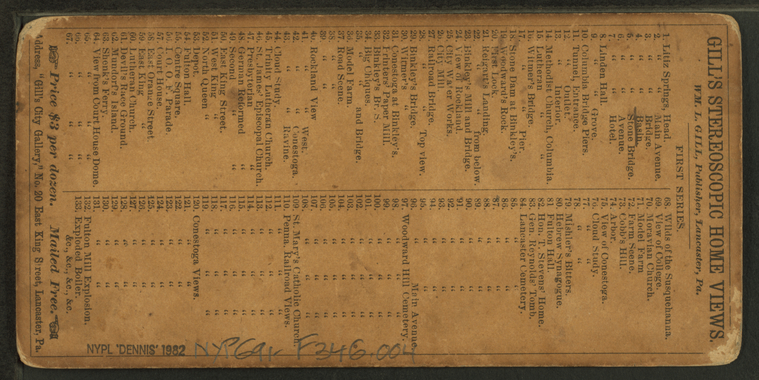 GILL'S STEREOSCOPIC HOME VIEWS.
WM. L. GILL, Publisher, Lancaster, Pa.
FIRST SERIES.
1. Litiz Springs, Head.
2. " " Main Avenue.
3. " " Bridge.
4. " " Basin.
5. " " Stone Bridge.
6. " " Avenue.
7. " " Hotel.
8. Linden Hall.
9. " " Grove.
10. Columbia Bridge Piers.
11. Tunnel, Entrance.
12. " Outlet.
13. " Interior.
14. Methodist Church, Columbia.
15. Lutheran " "
16. Witmer's Bridge.
17. " " Pier.
18. Stone Dam at Binkley's.
19. Woodward's Rock.
21. Reigart's Landing.
22. " " from below.
23. Binkley's Mill and Bridge.
24. View at Rockland.
25. City Water Works.
26. City Mill.
27. Railroad Bridge.
28. " " Top view.
29. Binkley's Bridge.
30. Witmer's "
31. Conestoga at Binkley's.
32. Printers' Paper Mill.
33. Binkley's
35. " and Bridge.
36. Model Farm.
37. Road Scene.
38. " "
39. " "
40. Rockland View
41. " " West.
42. " " Conestoga.
43. " " Ravine.
44. Cloud Study.
45. Trinity Lutheran Church.
46. St. James' Episcopal Church.
47. Presbyterian "
48. German Reformed "
49. Second " "
50. East King Street.
51. West King "
52. North Queen "
53. Depot.
54. Fulton Hall.
55. Centre Square.
56. I. O. of O. F. Parade.
57. Court House.
58. East Orange Street
60. Lutheran Church.
61. Devil's Race Ground.
62. Mundorf's Island.
63. Shenk's Ferry.
64. View from Court House Dome.
65. " " " "
66. " " " "
67. " " " "
68. Wilds of the Susquehanna.
69. View of College.
70. Moravian Church.
71. Model Farm
72. Farm Scene.
73. Cobb's Hill.
74. Arbor.
75. View of Conestoga.
76. Cloud Study.
77. " "
78. " "
79. Mishler's Bitters.
80. Hebrew Synagogue.
81. Fulton Hall.
82. Hon. T. Stevens' Home.
83. Gen'l Reynolds' Tomb.
84. Lancaster Cemetery.
85. " "
86. " "
87. " "
88. " "
89. " "
90. " "
91. " "
92. " "
93. " "
94. " "
95. " "
96. " " Main Avenue.
97. Woodward Hill Cemetery.
98. " " "
99. " " "
100. " " "
101. " " "
102. " " "
103. " " "
104. " " "
105. " " "
106. " " "
107. " " "
108. " " "
109. St. Mary's Catholic Church.
110. Penna. Railroad Views.
111. " " "
112. " " "
113. " " "
114. " " "
115. " " "
116. " " "
117. " " "
118. " " "
119. " " "
120. Conestoga Views.
121. " "
122. " "
123. " "
124. " "
125. " "
126. " "
127. " "
128. " "
129. " "
130. " "
131. " "
132. Fulton Mill Explosion.
133. Exploded Boiler.
&c., &c., &c., &c.
Price $3 per dozen. Mailed Free.
Address, "Gill's City Gallery," No. 20 East King Street, Lancaster, Pa.
NYPL "DENNIS" 1982